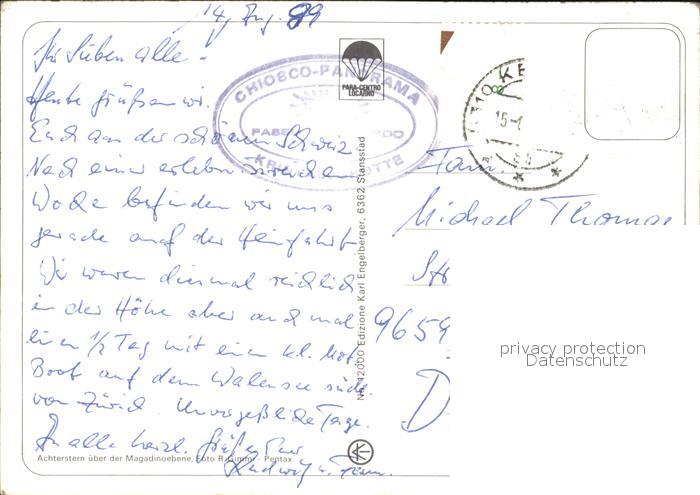 14. Aug. 89
Ihr Lieben alle -
Heute grüßen wir
Euch aus der schönen Schweiz
Nach einer erlebnisreichen
Woche befinden wir uns
gerade auf der Heimfahrt
Wir waren diesmal reichlich
in der Höhe aber auch mal
einen 1/2 Tag mit einem kl. Mot.
Boot auf dem Walensee südl.
von Zürich. Unvergeßliche Tage.
Ihr alle herzl. Grüße Eure
Ludwig u. Fam.
CHIOSCO-PANORAMA
PARA-CENTRO
LOCARNO
Fam.
Michael Thomas
9659
D
15-
Nr. 42000 Edizione Karl Engelberger, 6362 Stansstad
Achterstern über der Magadinoebene, Foto R. Gimmi - Pentax
privacy protection
Datenschutz